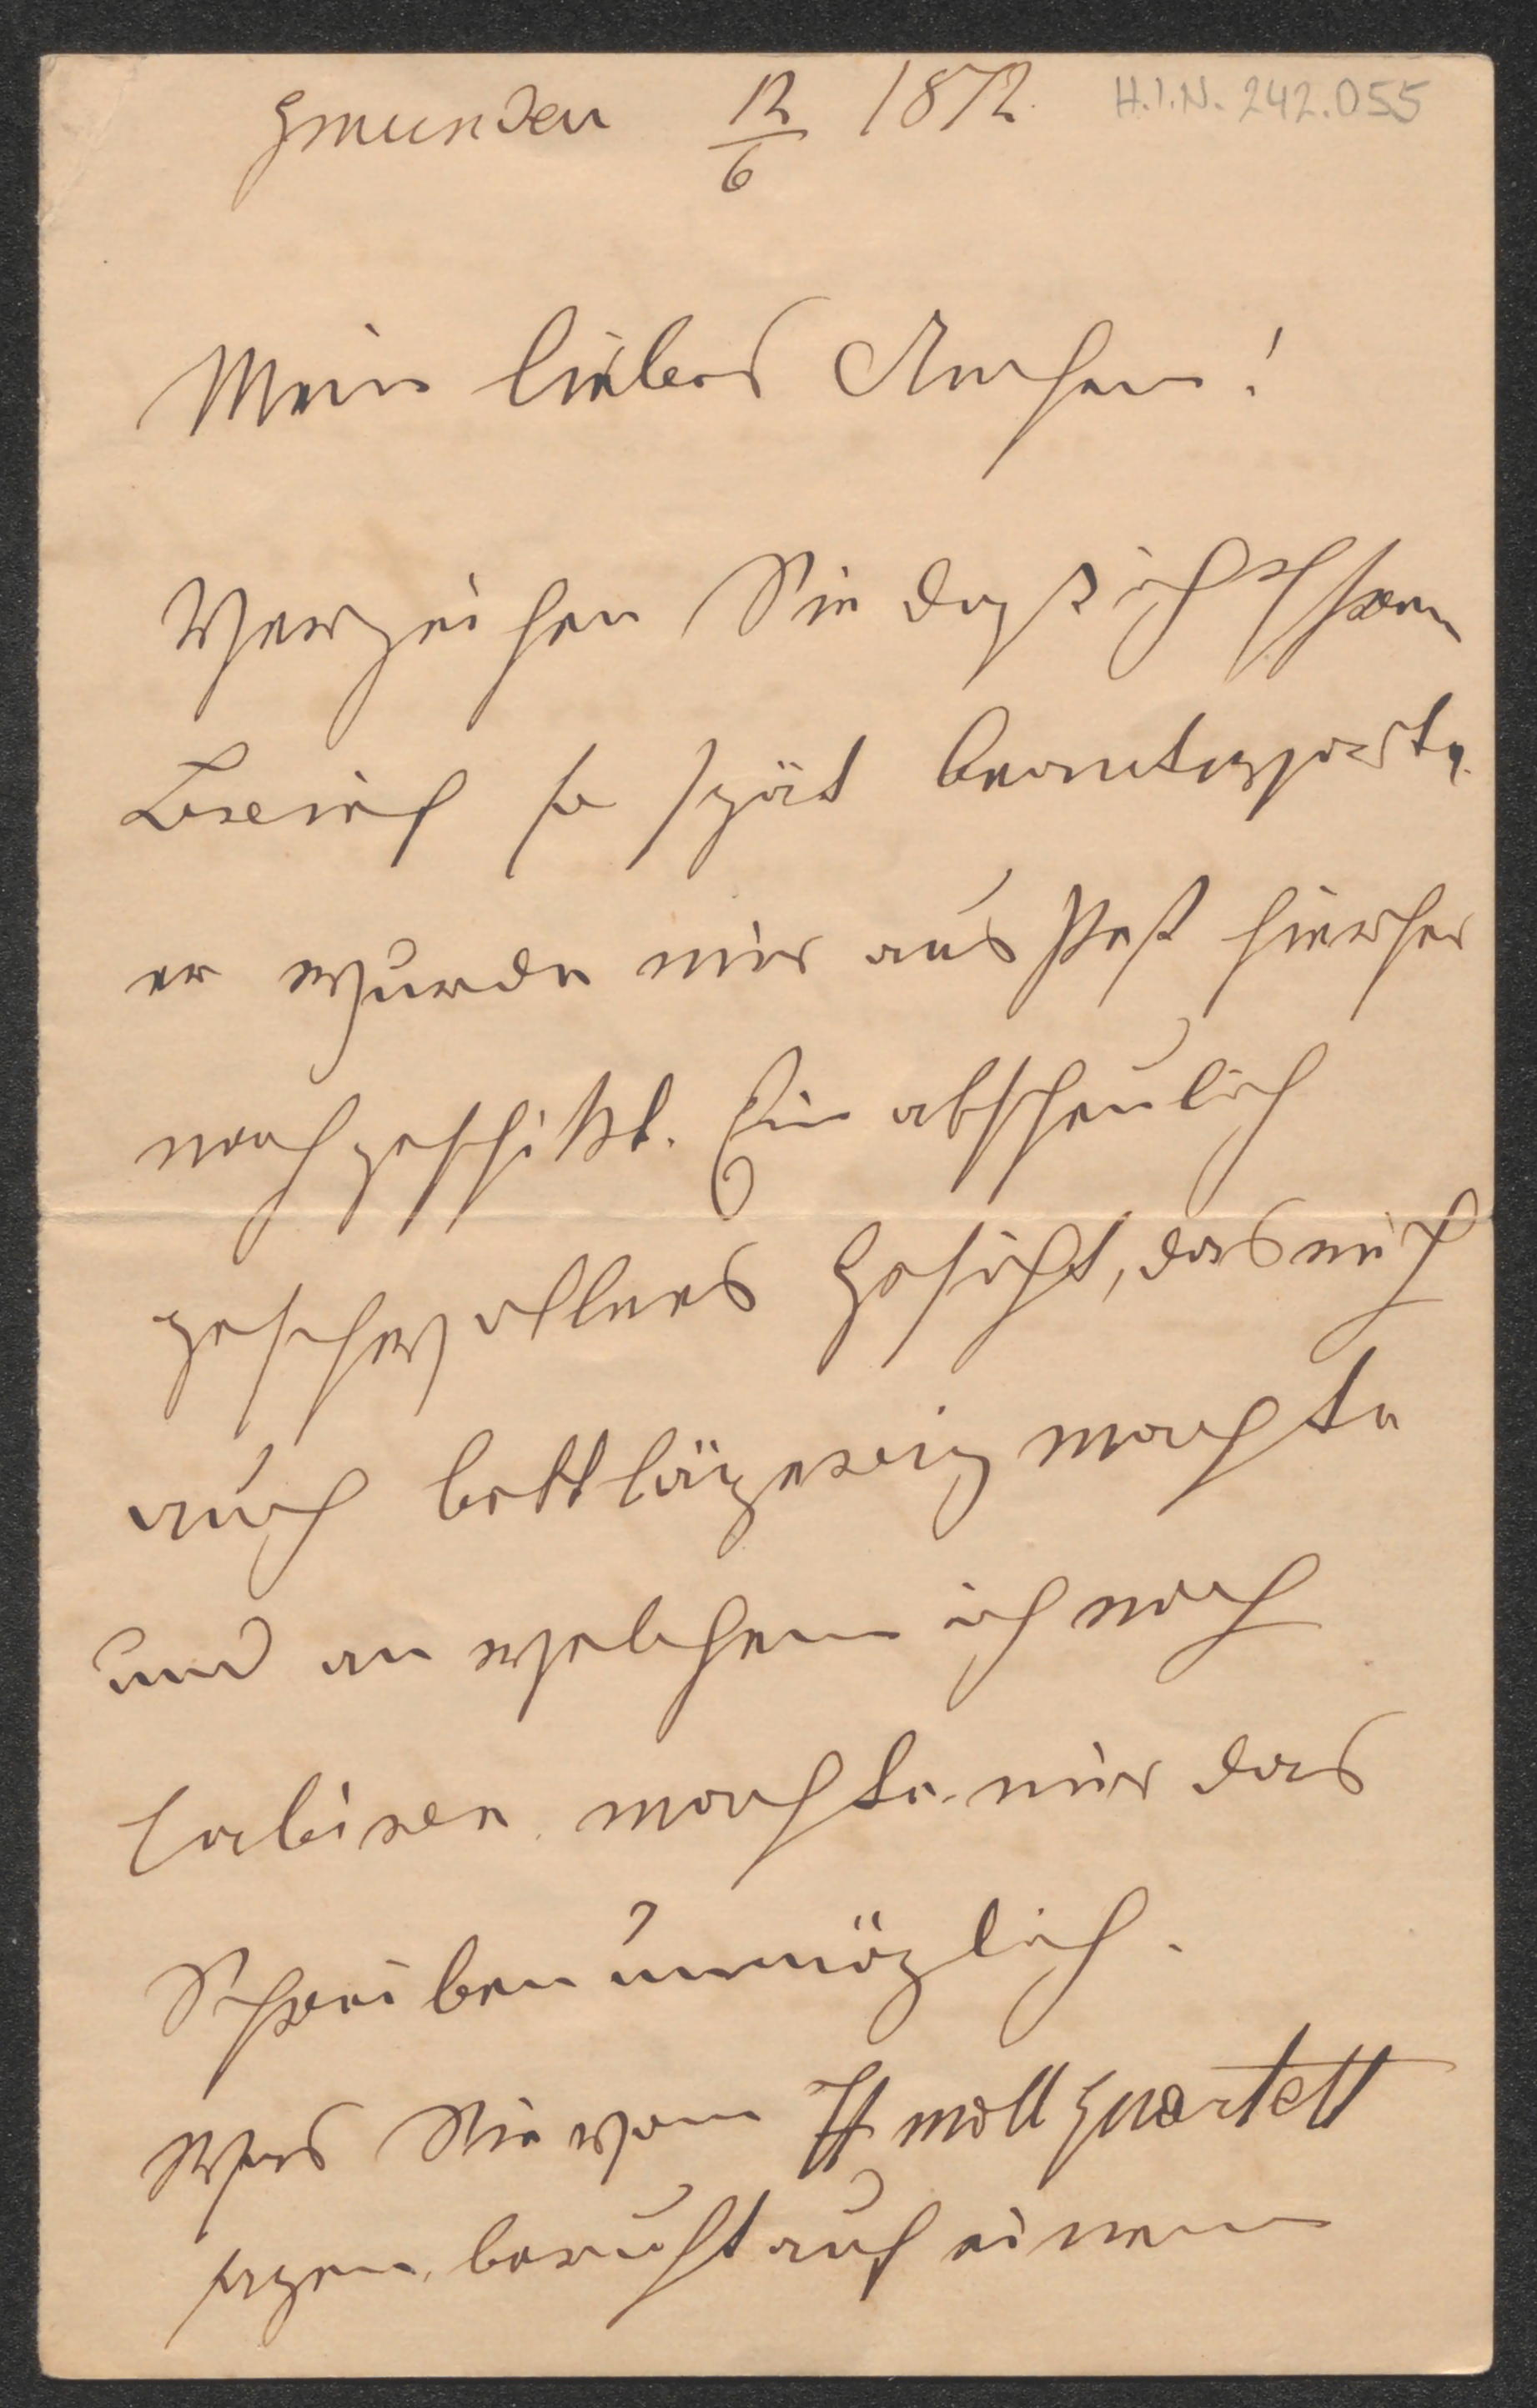 Gmunden 12/6 1872. H.I.N. 242.055
Mein liebes
Verzeihen Sie daß ich Ihren
Brief so spät beantworte.
er wurde mir aus Pest hierher
nachgeschikt. Ein abscheulich
geschwollenes Gesicht, das mich
auch bettlägerig machte
und an welchem ich noch
laborire machte mir das
Schreiben unmöglich.
Was Sie vom H moll Quartett
sagen, beruht auf einem